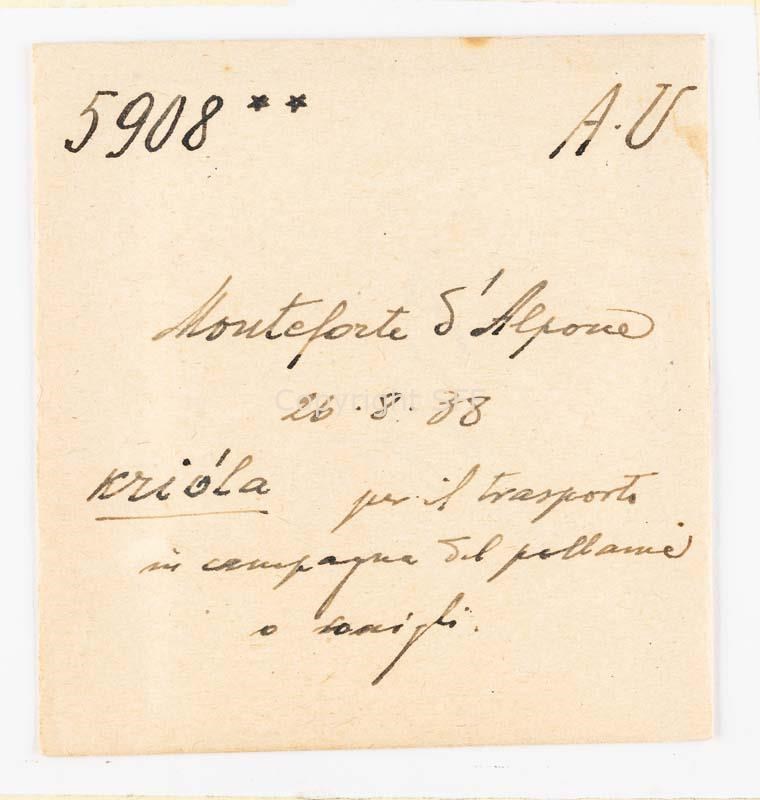 5908 ** A.U
Monteforte d'Alpone
26.8.38
Copyright
krióla per il trasporto
in campagna del pollame
o conigli.